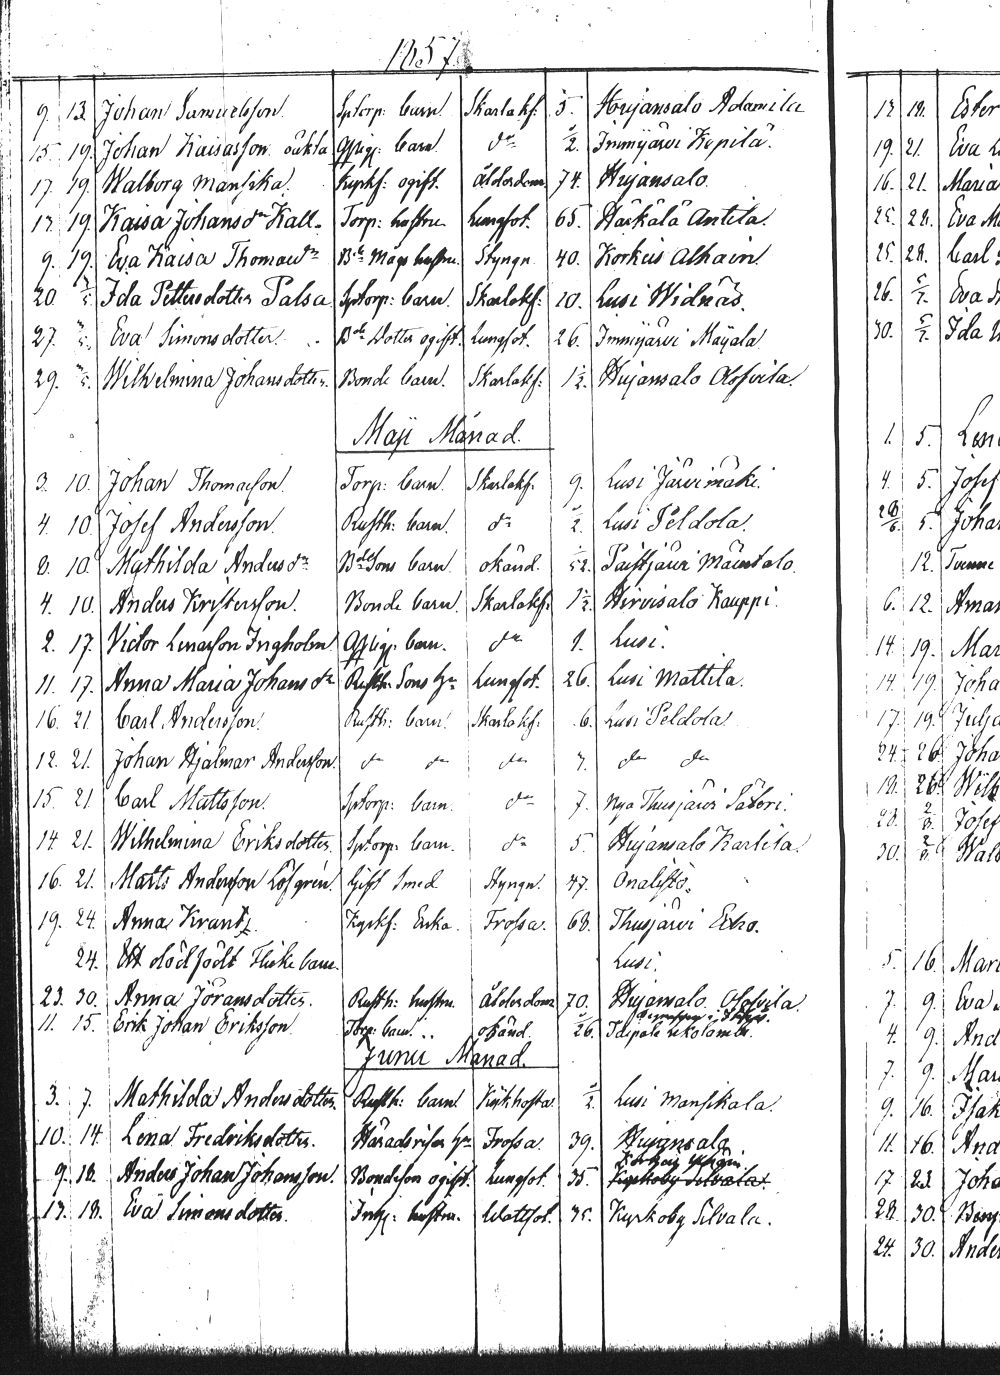 1857.
9. 13. Johan Samuelsson. Sptorp: barn. Skarlakf: 5. Hujansalo Adamila
15. 19. Johan Kaisasson oäkta barn. do 1/2. Immijärvi Kepilä.
17. 19. Walborg Mansika. Kyrkf: ogift. ålderdom 74. Hujansalo.
17. 19. Kaisa Johansdr Kall. Torp: hustru Lungsot. 65. Häkälä Antila.
9. 19. Eva Kaisa Thomasdr Bde Mågs hustru. Styngn. 40. Korkeis Alhain.
20. 3/5. Ida Pettersdotter Palsa Sptorp: barn. Skarlakf: 10. Lusi Widnäs.
27. 3/5. Eva Simonsdotter. Bde Dotter ogift. Lungsot. 26. Immijärvi Mäyälä
29. 3/5. Wilhelmina Johansdotter. Bonde barn. Skarlakf: 1 1/2. Hujansalo Olofvila.
Maji Månad.
3. 10. Johan Thomasson. Torp: barn. Skarlakf: 9. Lusi Järvimäki.
4. 10. Josef Andersson. Rusth: barn. do 1/2. Lusi Peldola.
8. 10. Mathilda Andersdr Bde Sons barn. okänd. 1/52. Paistjärvi
4. 10. Anders Kristersson. Bonde barn. Skarlakf: 1 1/2. Hirvisalo Kauppi.
2. 17. Victor Lenasson Ingholm barn. do 1. Lusi.
11. 17. Anna Maria Johansdr Rusth: Sons hu Lungsot. 26. Lusi Mattila.
16. 21. Carl Andersson. Rusth: barn. Skarlakf: 6. Lusi Peldola
12. 21. Johan Hjalmar Andersson. do do do 7. do do
15. 21. Carl Mattsson. Sptorp: barn. do 7. nya Thusjärvi Säteri.
14. 21. Wilhelmina Eriksdotter. Sptorp: barn. do 5. Hujansalo Karlila.
16. 21. Matts Andersson Löfgren. Gift Smed Styngn. 47. Onalistö.
19. 24. Anna Krantz. Kyrkf: Enka. Frossa. 68. Thusjärvi Erro.
24. Ett dödfödt Flicke barn. Lusi.
23. 30. Anna Göransdotter. Rusth: hustru ålderdom 70. Hujansalo Olofvila
11. 15. Erik Johan Eriksson. Torp: barn. okänd. 1/26.
Junii Månad.
3. 7. Mathilda Andersdotter. Rusth: barn. Kikhosta 1/2. Lusi Mansikala.
10. 14. Lena Fredriksdotter. Frossa. 39. Hujansala
9. 18. Anders Johan Johansson. Bondeson ogift. Lungsot. 35. Kyrkoby Silvala.
13. 18. Eva Simonsdotter. hustru. Wattsot. 35. Kyrkoby Silvala.
17. 18. Ester
19. 21. Eva
16. 21. Maria
25. 28. Eva
25. 28. Carl
26. 5/7. Eva
30. 5/7. Ida
1. 5.
4. 5. Josef
28/6. 5. Johan
12.
6. 12.
14. 19.
14. 19. Joha
17. 19. Julja
24. 26. Joha
18. 26.
28. 2/8. Josef
30. 2/8.
5. 16. Mari
7. 9. Eva
4. 9. And
7. 9. Mar
9. 16. Isak
11. 16. And
17. 23. Joha
28. 30. Benj
24. 30. Ander